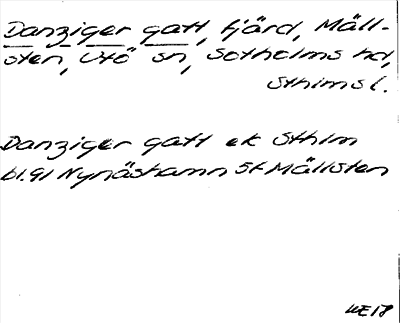 Danziger gatt, fjärd, Mäll-
sten, Utö sn, Sotholms hd,
Sthlms l.
Danziger gatt ek Sthlm
bl. 91 Nynäshamn SV Mällsten
WE 17